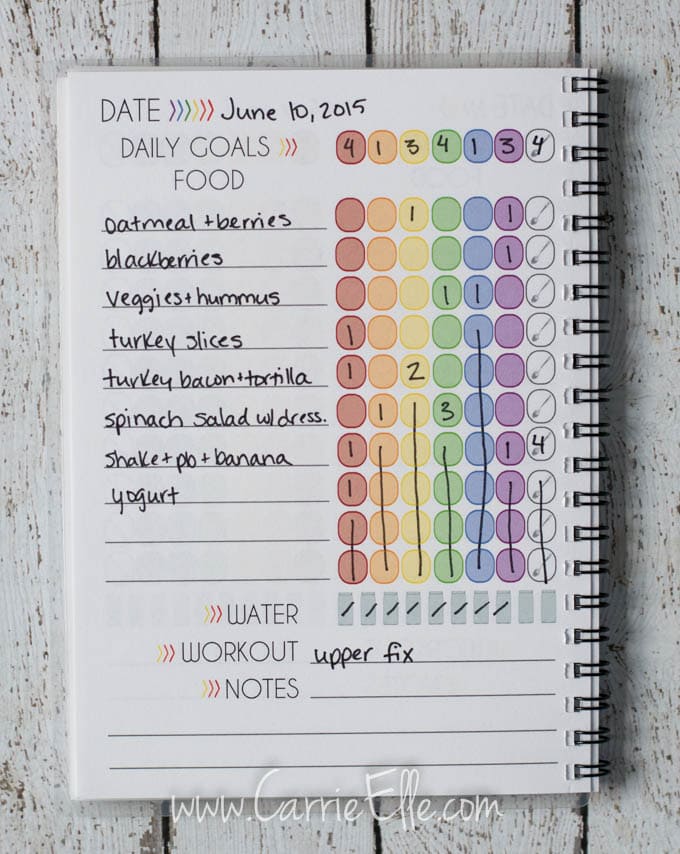 DATE June 10, 2015
DAILY GOALS 4 1 3 4 1 3 4
FOOD
oatmeal + berries 1 1
blackberries 1
veggies + hummus 1 1
turkey slices 1
turkey bacon + tortilla 1 2
spinach salad w/ dress. 1 3
shake + pb + banana 1 1 4
yogurt 1
WATER
WORKOUT upper fix
NOTES
www.CarrieElle.com